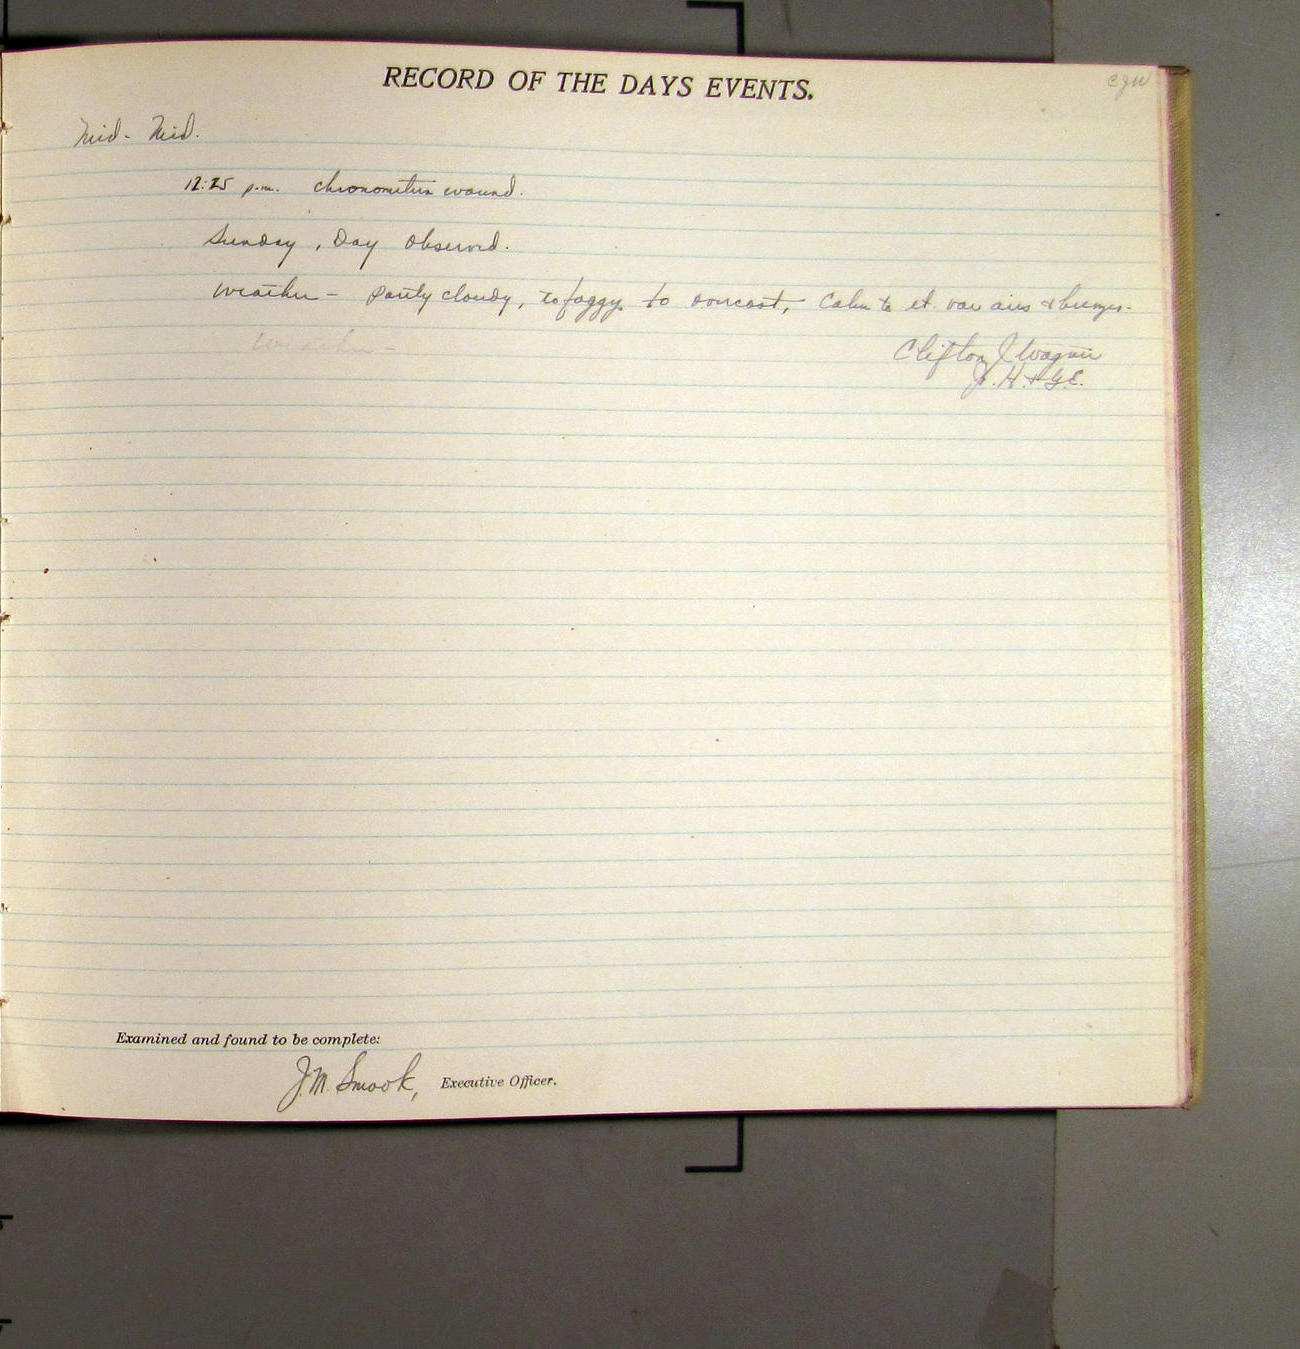 RECORD OF THE DAYS EVENTS.
CJW
Mid - Mid.
12:25 p.m. chronometers wound.
Sunday, Day Observed.
Weather - partly cloudy, to foggy to overcast, Calm to lt. var airs & breezes.
Weather -
Clifton J. Wagner
Jr. H. & G.E.
Examined and found to be complete:
J.M. Smook, Executive Officer.